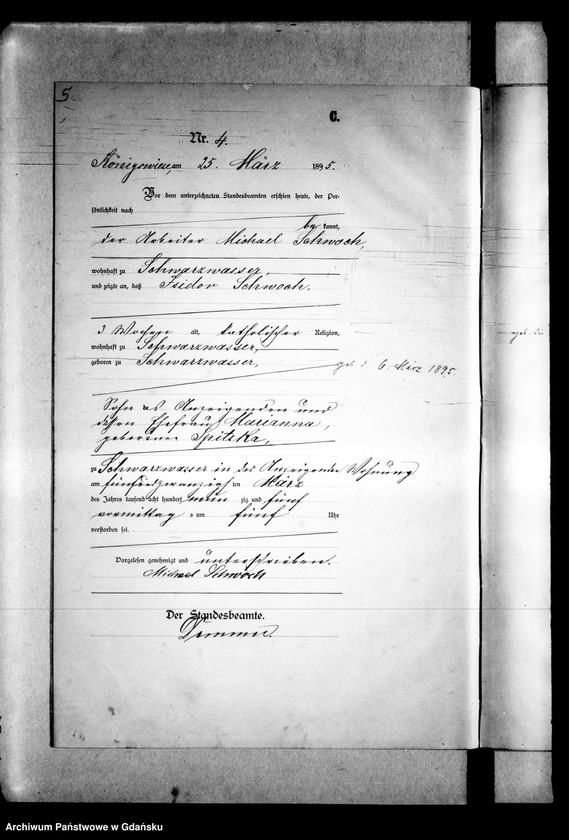 5
C.
Nr. 4.
Königswiese, am 25. März 1895.
Vor dem unterzeichneten Standesbeamten erschien heute, der Per-
sönlichkeit nach
be kannt,
der Arbeiter Michael Schwoch,
wohnhaft zu Schwarzwasser,
und zeigte an, daß Isidor Schwoch.
3 Wochen alt, katholischer Religion,
wohnhaft zu Schwarzwasser,
geboren zu Schwarzwasser, geb. d. 6. März 1895.
Sohn des Anzeigenden und
dessen Ehefrau Marianna,
geborenen Spitzka,
zu Schwarzwasser in des Anzeigenden Wohnung
am fünfundzwanzigsten März
des Jahres tausend acht hundert neun zig und fünf
vormittag s um fünf Uhr
verstorben sei.
Vorgelesen, genehmigt und unterschrieben.
Michael Schwoch
Der Standesbeamte.
Archiwum Państwowe w Gdańsku